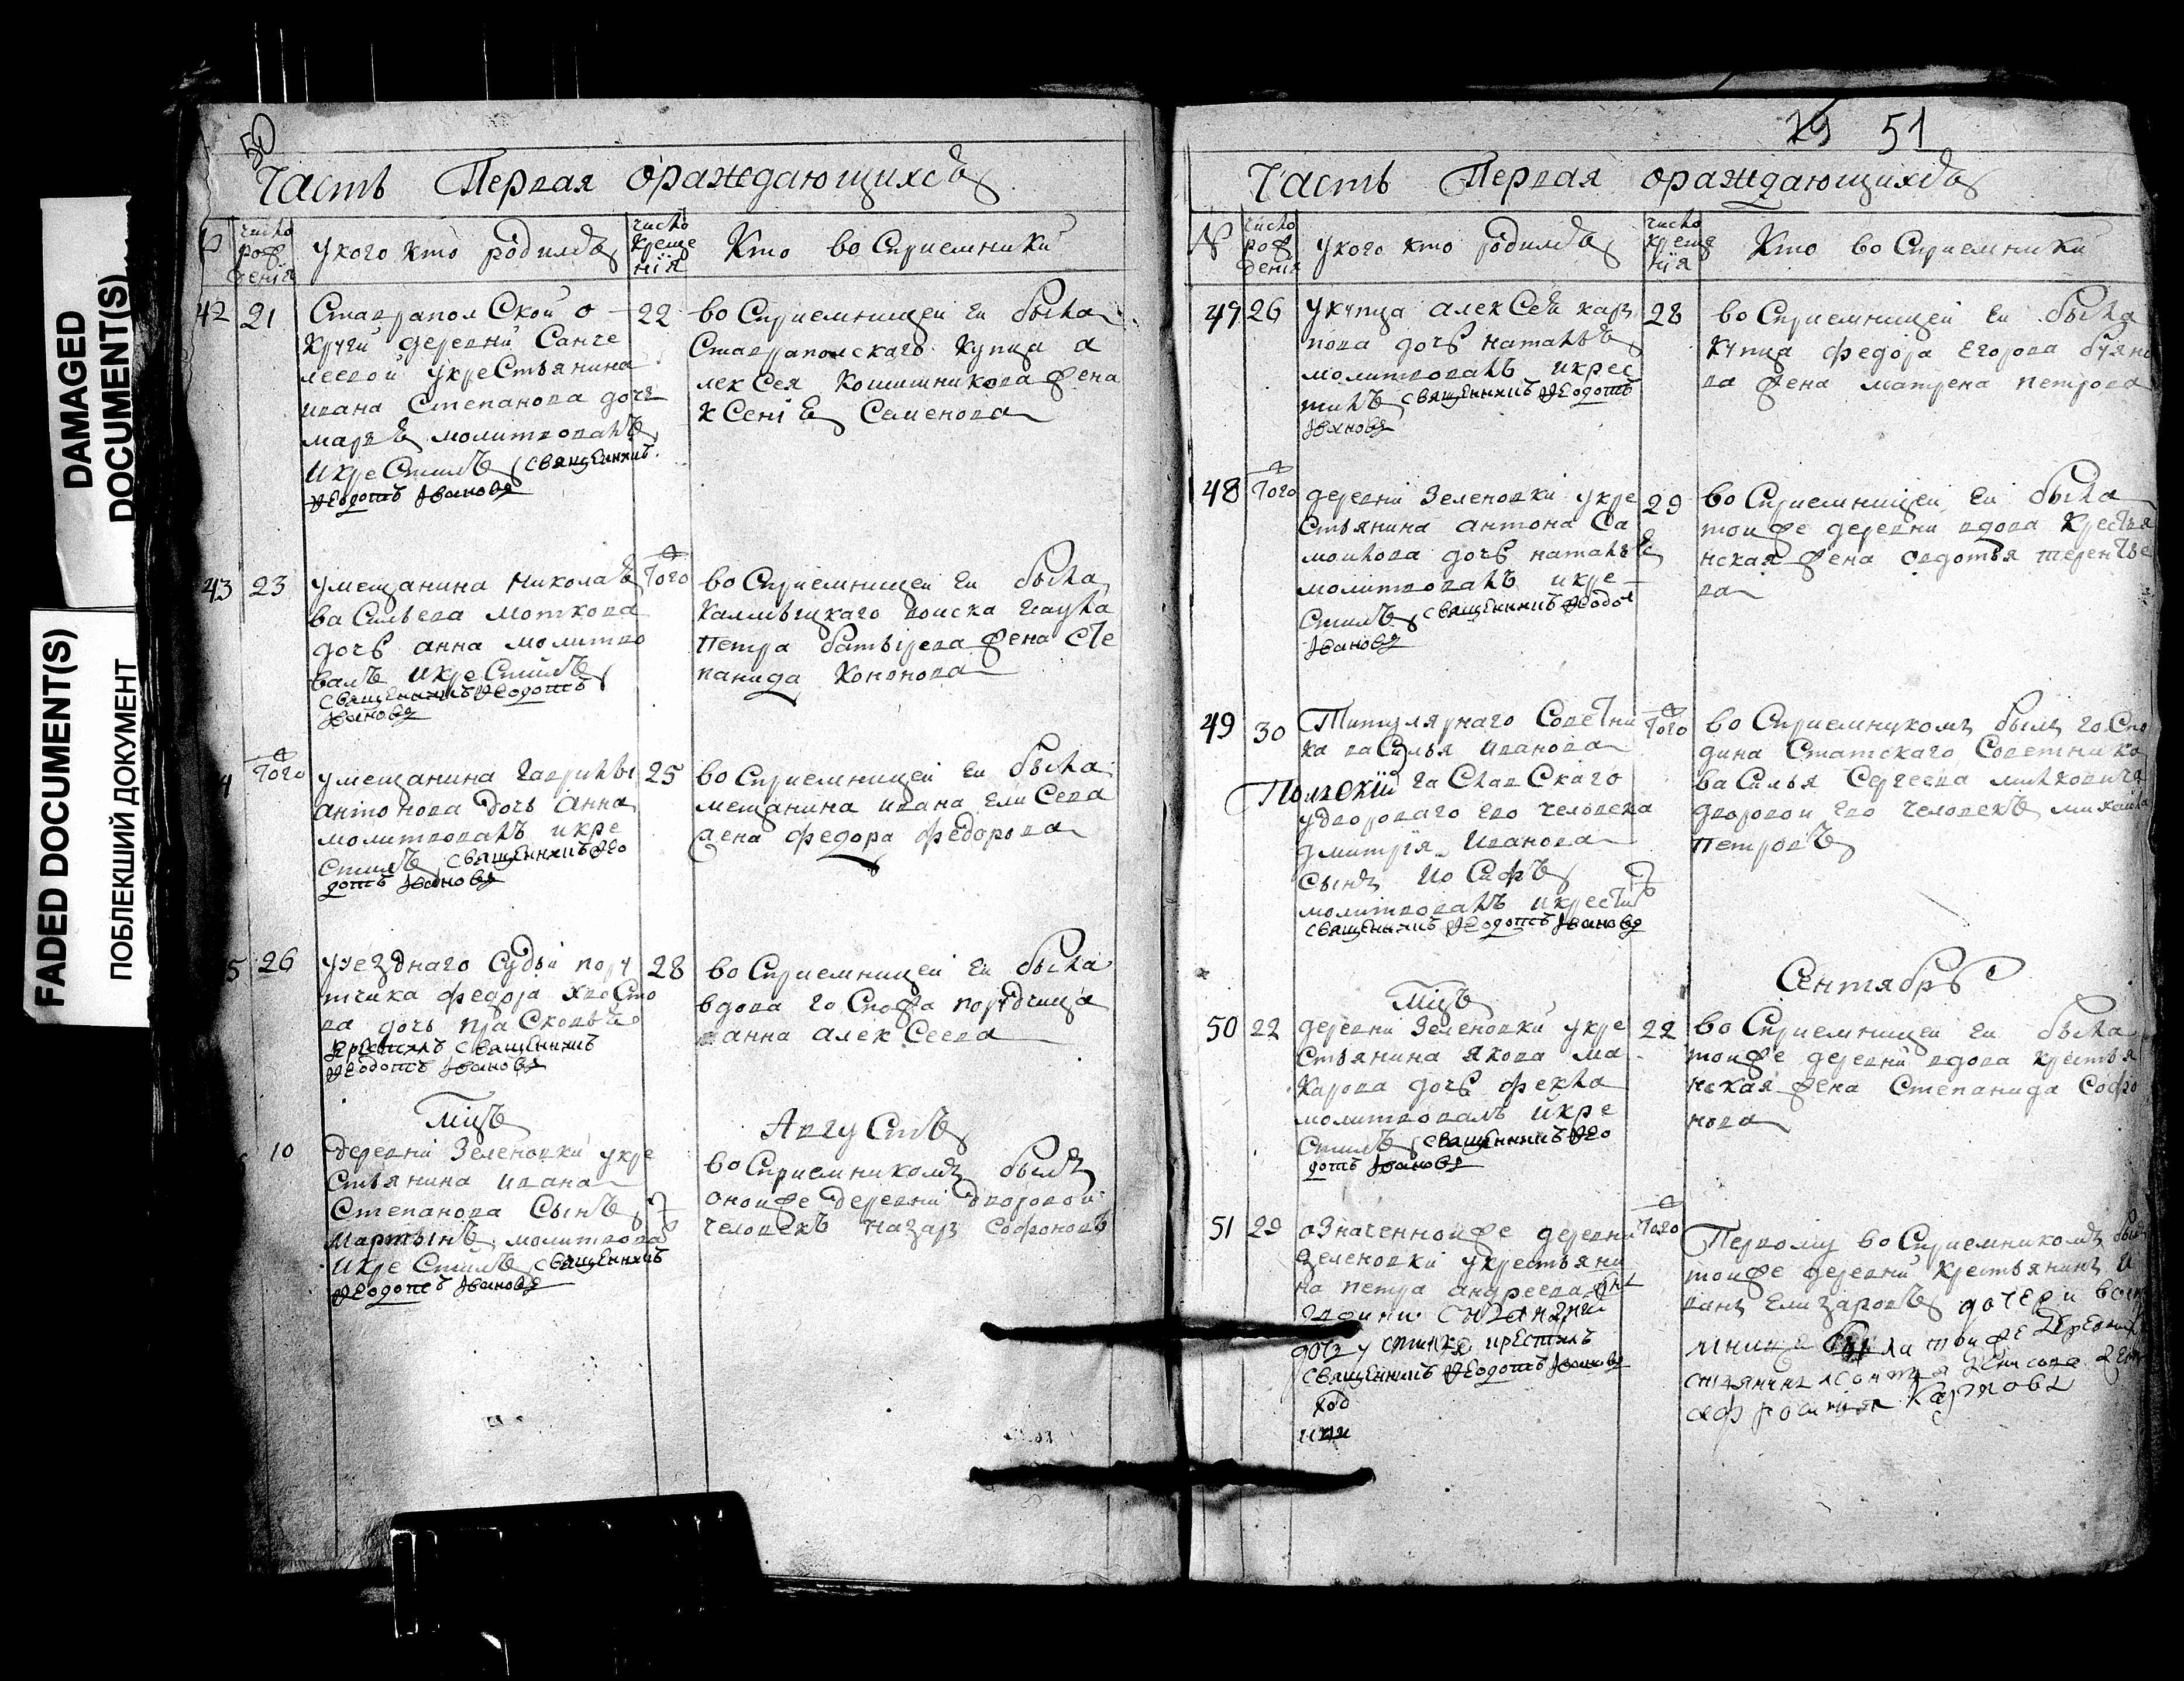 DAMAGED
DOCUMENT(S)
FADED DOCUMENT(S)
ПОБЛЕКШИЙ ДОКУМЕНТ
50
Часть Первая ораждающихсѣ
№
число
рож
дения
укого кто родилсѣ
число
креще
нїя
Кто во Сприемники
42
21
Ставрапол Ской о
круги деревни Санче
леевой укреСтьянина
ивана Степанова дочь
марѣѣ молитвовалъ
икреСтилъ священникъ
Ѳеодотъ Iвановъ
22
воСприемницей ей была
Ставрапольскаго купца а
лекСея Кошишникова жена
кСенїѣ Семенова
43
23
умещанина николаѣ
ваСильева моткова
дочь анна молитво
валъ икреСтилъ
священникъ Ѳеодотъ
Iвановъ
Того
воСприемницей ей была
Калмыцкаго войска есаула
петра батырева жена сте
панида Кононова
4
Того
умещанина гаврилы
антонова дочь анна
молитвовалъ икре
Стилъ священникъ Ѳео
дотъ Iвановъ
25
воСприемницей ей была
мещанина ивана елиСева
жена федора федорова
5
26
уезднаго судьи пору
тчика федора хвоСто
ва дочь праСковьѣ
крестилъ священникъ
Ѳеодотъ Iвановъ
28
воСприемницей ей была
вдова гоСпожа порудчица
анна алекСеева
Мцъ
АвгуСтъ
10
деревни Зеленовки укре
Стьянина ивана
Степанова Сынъ
мартынъ молитвова
икреСтилъ священникъ
Ѳеодотъ Iвановъ
воСприемникомъ былъ
оной же деревни дворовой
человекъ назаръ софоновъ
29 51
Часть Первая ораждающихсѣ
№
число
рож
дения
укого кто родилсѣ
число
креще
нїя
Кто воСприемники
47
26
укупца алекСеѣ кар
пова дочь наталѣѣ
молитвовалъ икрес
тилъ священникъ Ѳеодотъ
Iвановъ
28
воСприемницей ей была
купца федора Егорова буяно
ва жена матрена петрова
48
Того
деревни Зеленовки укре
Стьянина антона Са
мойлова дочь наталѣѣ
молитвовалъ икре
Стилъ священникъ Ѳеодот
Iвановъ
29
воСприемницей ей была
той же деревни вдова крестья
нская жена овдотья терентье
ва
49
30
Титулярнаго Советни
ка ваСилья иванова
Польскїй гаСлавСкаго
удвороваго его человека
дмитрїя иванова
сынъ ИоСифъ
молитвовалъ икрести
священникъ Ѳеодотъ Iвановъ
Того
воСприемникомъ былъ гоСпо
дина Статскаго Советника
ваСилья Сергеева милковича
дворовой его человекъ михаила
петровъ
Мцъ
Сентябрь
50
22
деревни Зеленовки укре
Стьянина якова ма
карова дочь фекла
молитвовалъ икре
Стилъ священникъ Ѳео
дотъ Iвановъ
22
воСприемницей ей была
той же деревни вдова крестья
нская жена Степанида Софо
нова
51
29
оЗначенной же деревни
Зеленовки укрестьяни
на петра андреева
дочь крестилъ
священникъ Ѳеодотъ Iвановъ
Того
Первому воСприемникомъ былъ
той же деревни крестьянинъ и
ванъ Елизаровъ дочери воспр
мница была той же деревни
Карпова